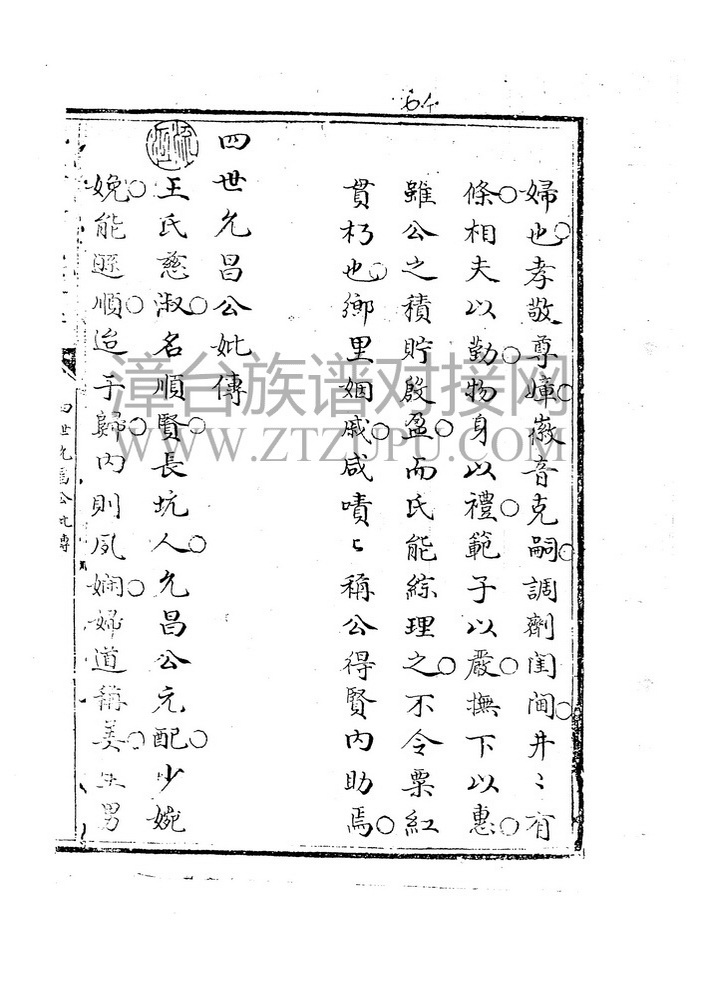 婦也孝敬尊嫜徽音克嗣調劑閨閫井〻有
條相夫以勤物身以禮範子以嚴撫下以惠
雖公之積貯殷盈而氏能綜理之不令粟紅
貫朽也鄉里姻戚咸嘖〻稱公得賢內助焉
四世允昌公妣傳
王氏慈淑名順賢長坑人允昌公元配少婉
娩能遜順迨于歸內則夙嫻婦道稱美生男
四世允昌公妣傳
漳台族谱对接网
WWW.ZTZUPU.COM